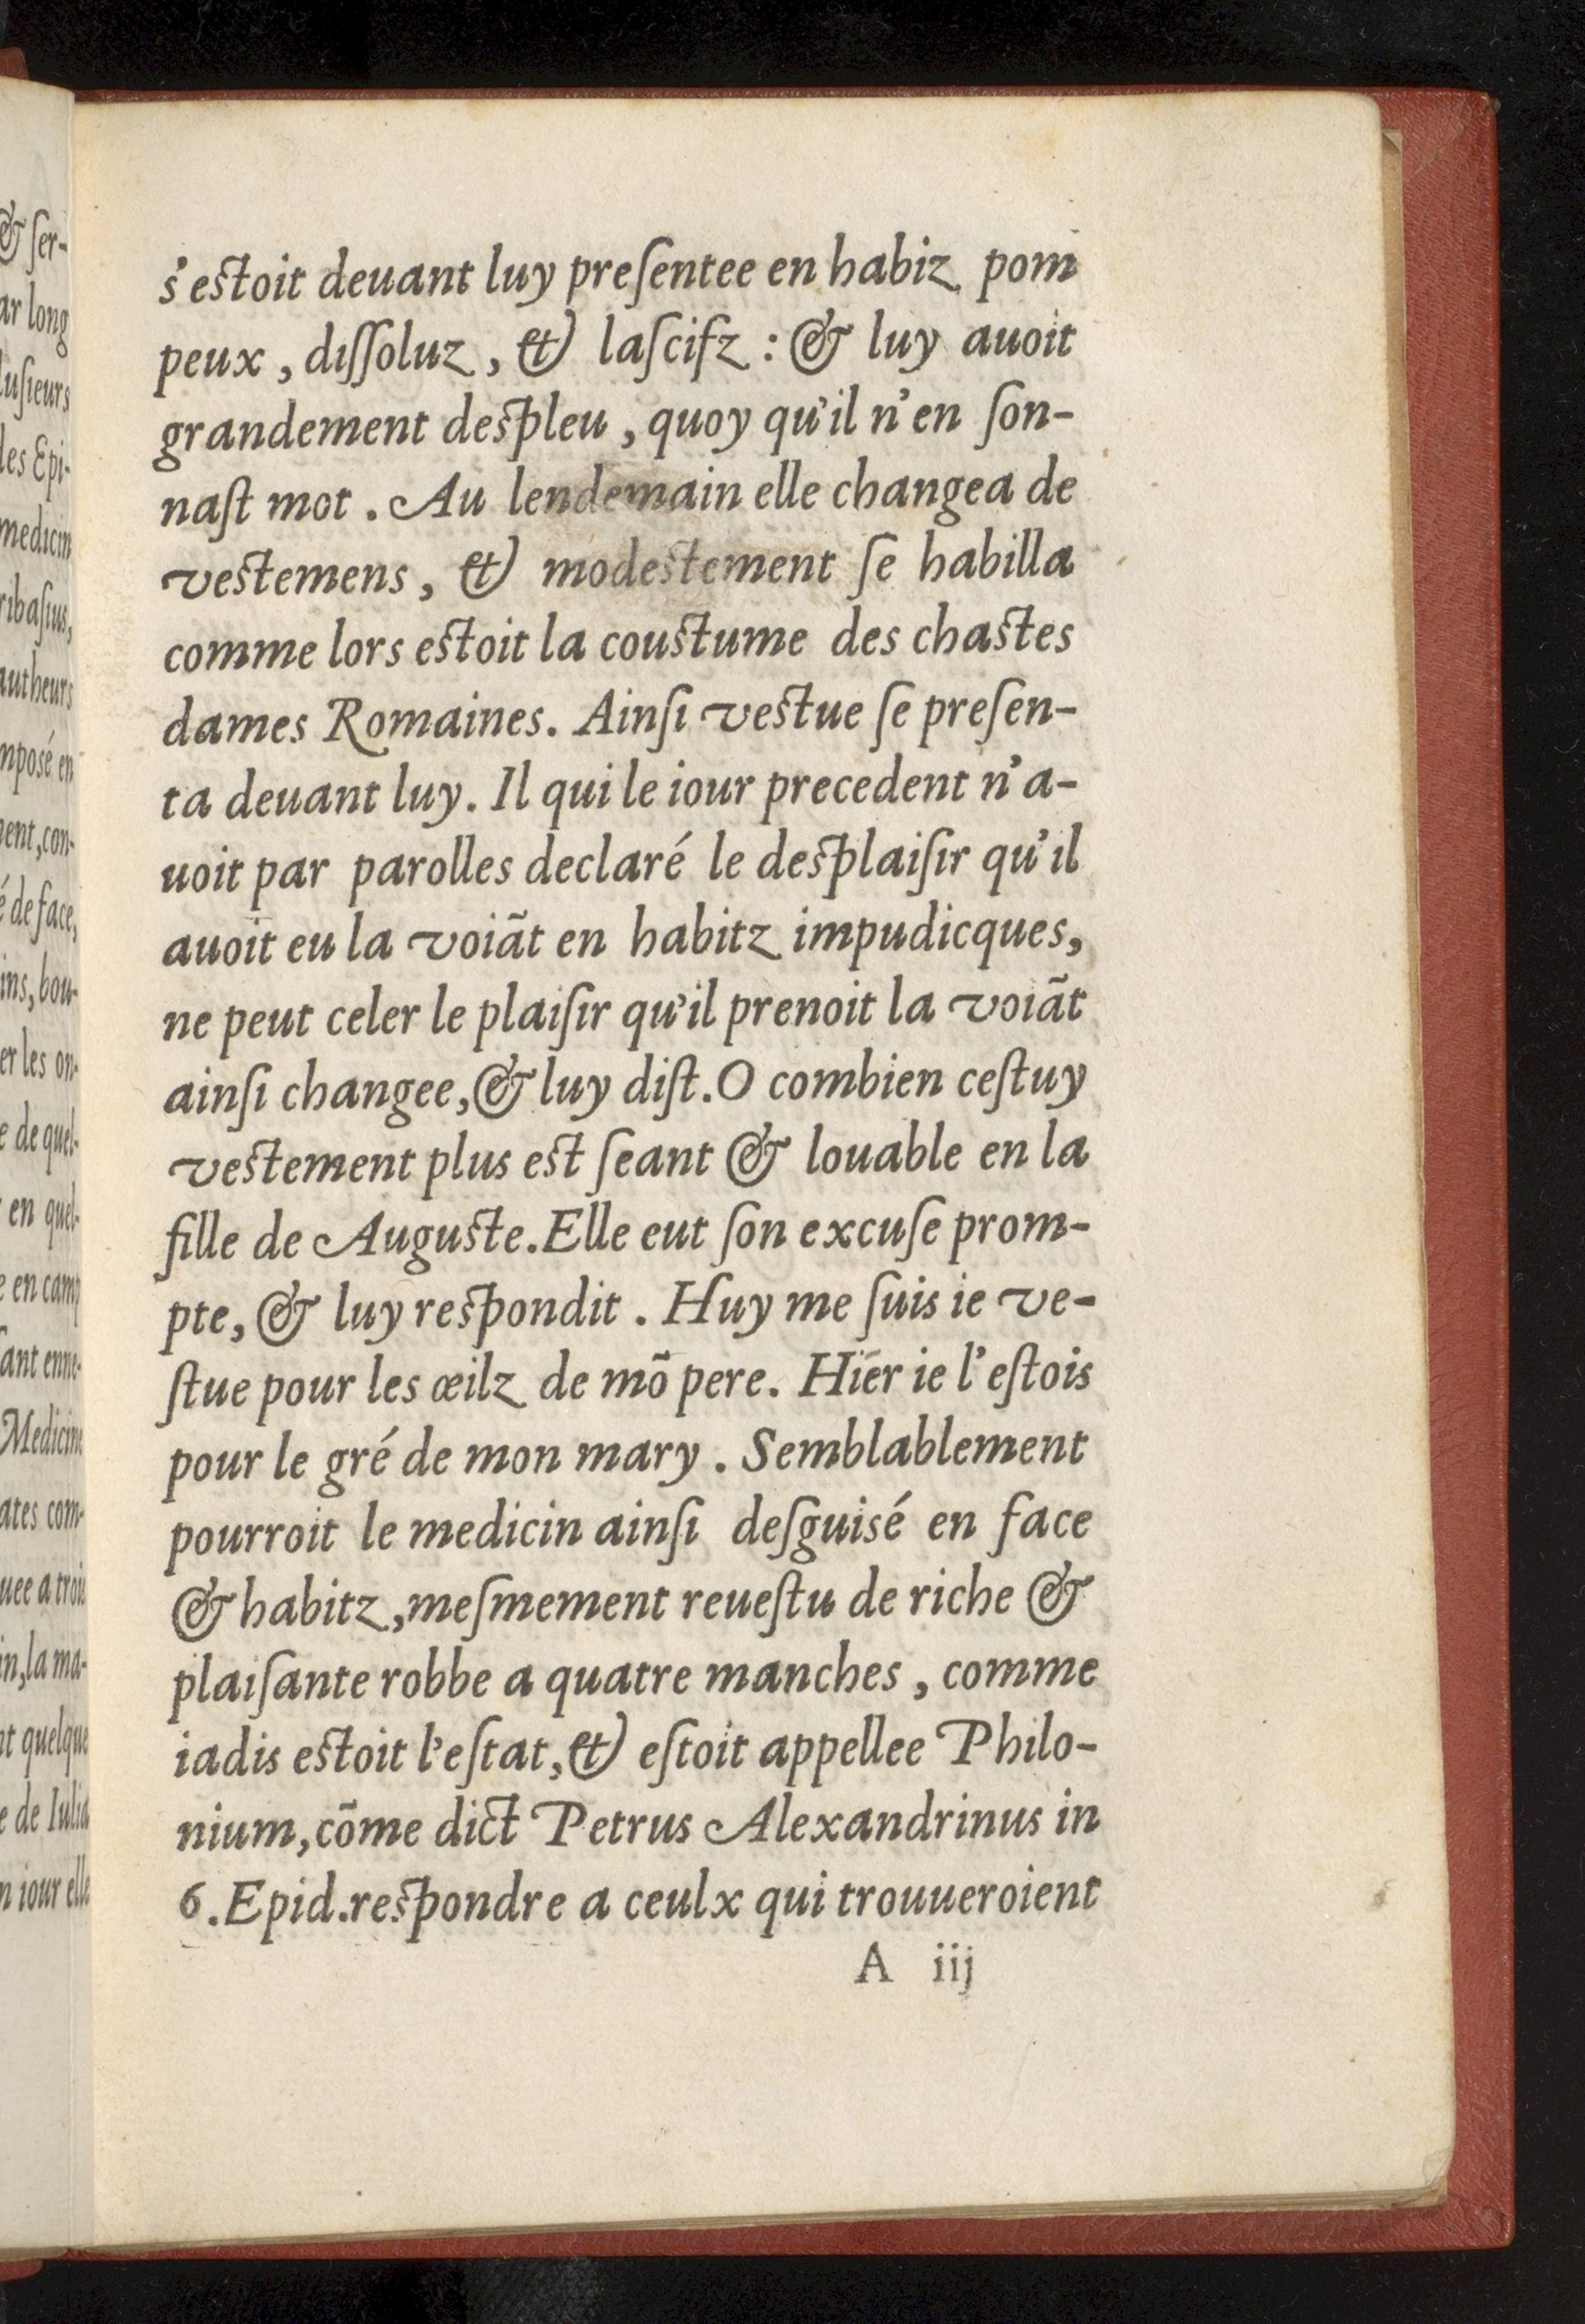 & ſer-
ar long
luſieurs
les Epi-
medicin
ribaſius,
autheurs
mposé en
ment,con-
é de face,
ins, bou-
er les on-
e de quel-
en quel-
e en camp
ſant enne-
Medicine
ates com-
uee a trois
in,la ma-
nt quelque
e de Iulia
n iour elle
s'eſtoit deuant luy preſentee en habiz pom
peux, diſſoluz, & laſcifz : & luy auoit
grandement deſpleu, quoy qu'il n'en ſon-
naſt mot. Au lendemain elle changea de
veſtemens, & modeſtement ſe habilla
comme lors eſtoit la couſtume des chaſtes
dames Romaines. Ainſi veſtue ſe preſen-
ta deuant luy. Il qui le iour precedent n'a-
uoit par parolles declaré le deſplaiſir qu'il
auoit eu la voiãt en habitz impudicques,
ne peut celer le plaiſir qu'il prenoit la voiãt
ainſi changee,& luy diſt. O combien ceſtuy
veſtement plus eſt ſeant & louable en la
fille de Auguſte. Elle eut ſon excuſe prom-
pte, & luy reſpondit. Huy me ſuis ie ve-
ſtue pour les œilz de mõ pere. Hier ie l'eſtois
pour le gré de mon mary. Semblablement
pourroit le medicin ainſi deſguisé en face
& habitz, meſmement reueſtu de riche &
plaiſante robbe a quatre manches, comme
iadis eſtoit l'eſtat, & eſtoit appellee Philo-
nium,cõme dict Petrus Alexandrinus in
6.Epid.reſpondre a ceulx qui trouueroient
A iij